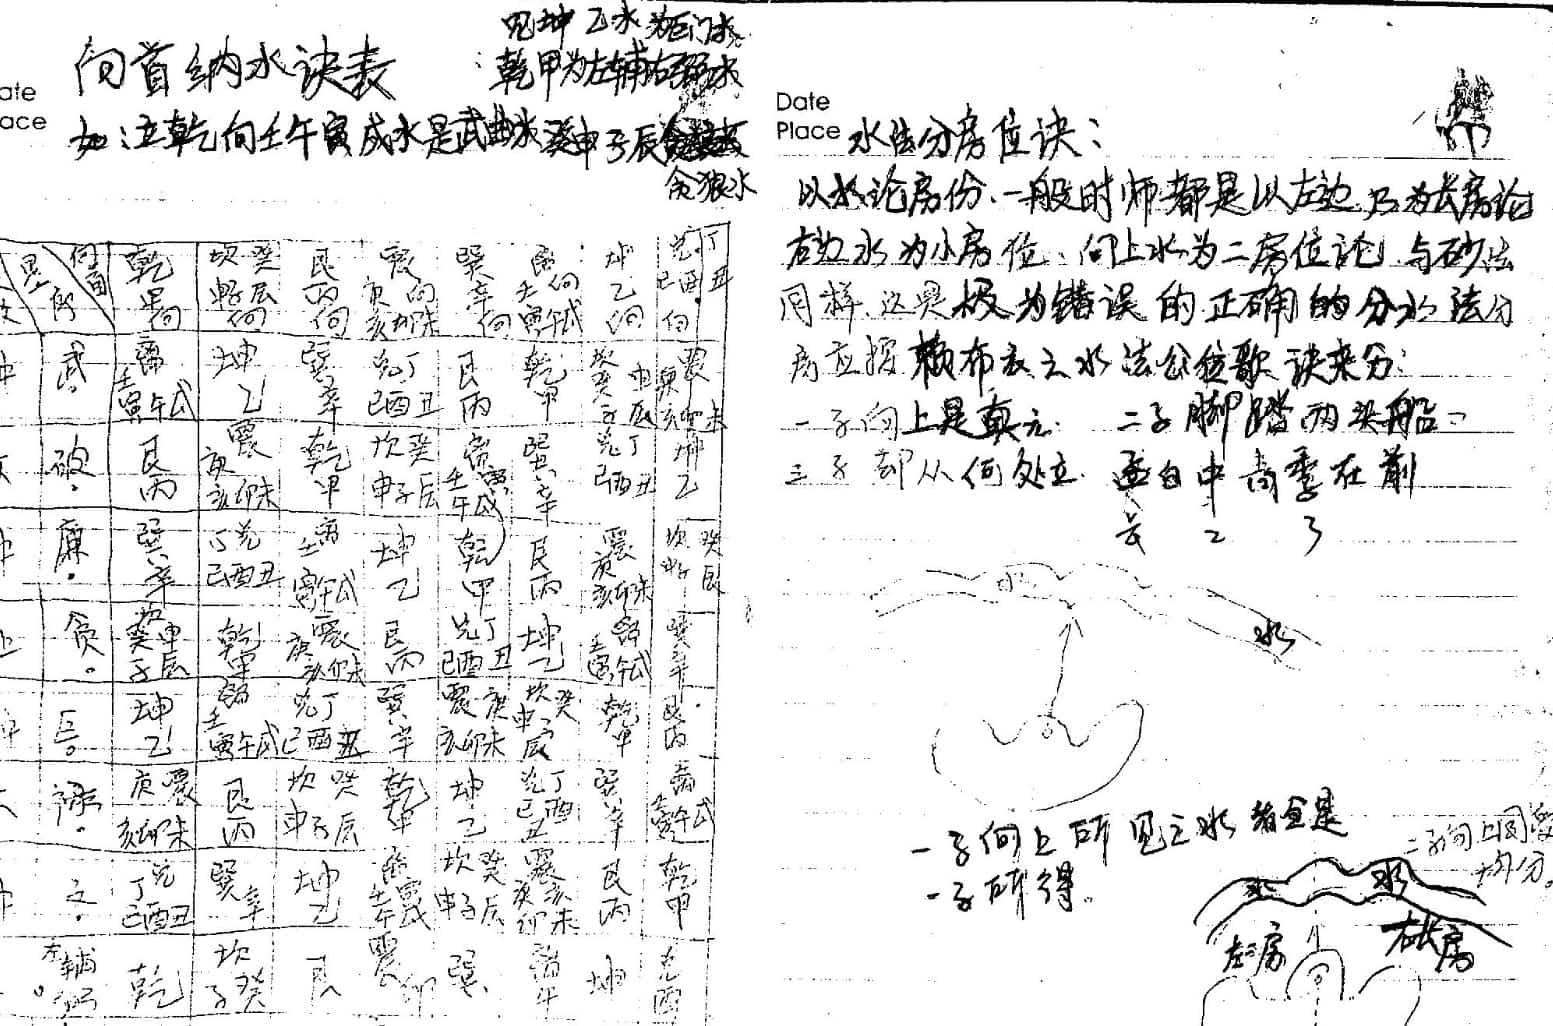 兑坤乙水为巨门水
向首纳水诀表
:乾甲为左辅右弼水
ate
ace
如:立乾向壬午寅戌水是武曲水癸申子辰
贪狼水
向首
星
乾甲向
坎癸申子辰向
艮丙向
震庚向亥卯未
巽辛向
离向壬寅午戌
坤乙向
兑丁巳酉丑向
武。 离壬寅午戌 坤乙 巽辛 兑丁巳酉丑 艮丙 乾甲 坎癸申子辰 震庚亥卯未
破。 艮丙 震庚亥卯未 乾甲 坎癸申子辰 离壬寅午戌 巽辛 兑丁巳酉丑 坤乙
廉。 巽辛 兑丁巳酉丑 离壬寅午戌 坤乙 乾甲 艮丙 震庚亥卯未 坎癸申子辰
贪。 坎癸申子辰 乾甲 震庚亥卯未 艮丙 兑丁巳酉丑 坤乙 离壬寅午戌 巽辛
巨。 坤乙 离壬寅午戌 兑丁巳酉丑 巽辛 震庚亥卯未 坎癸申子辰 乾甲 艮丙
禄。 震庚亥卯未 艮丙 坎癸申子辰 乾甲 坤乙 兑丁巳酉丑 巽辛 离壬寅午戌
文。 兑丁巳酉丑 巽辛 坤乙 离壬寅午戌 坎癸申子辰 震庚亥卯未 艮丙 乾甲
左辅 乾 坎癸子 艮 震卯 巽 离午 坤 兑酉
Date
Place
水法分房位诀:
以水论房份、一般时师都是以左边水为长房论
右边水为小房位、向上水为二房位论、与砂法
同样、这是极为错误的正确的分水法分
房应按赖布衣之水法公位歌诀来分:
一子向上是真元、二子脚踏两头船、
三子却从何处立、孟自中当季在前
长 2 3
水
水
一子向上所见之水都全是
一子所得。
二子向上同
均分。
水 水
左二房 右长房